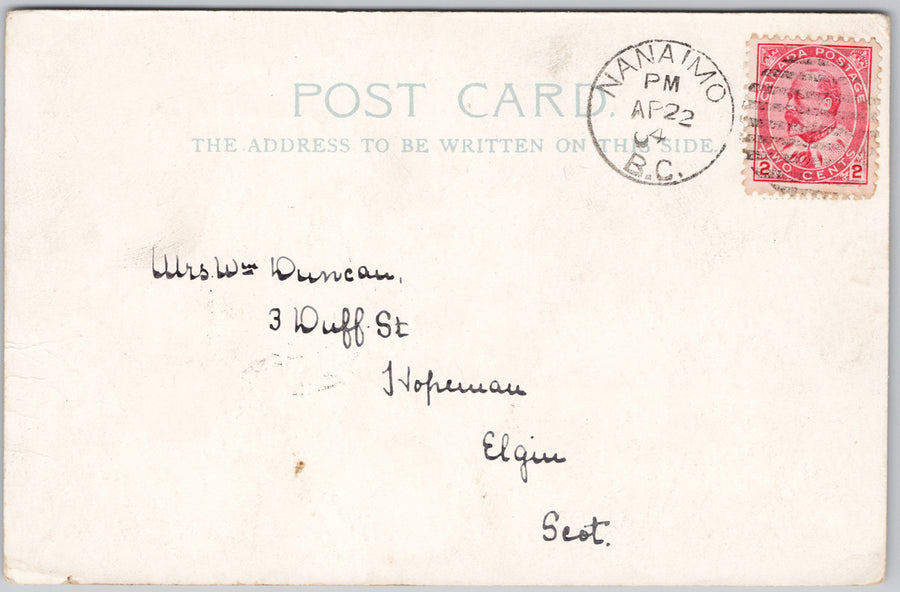 POST CARD.
THE ADDRESS TO BE WRITTEN ON THIS SIDE.
NANAIMO
PM
AP 22
04
B.C.
CANADA POSTAGE
2 TWO CENTS 2
Mrs. Wm Duncan,
3 Duff St
Hopeman
Elgin
Scot.